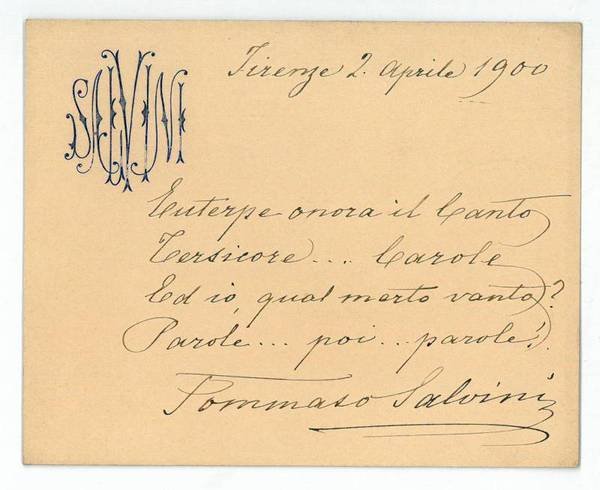 Firenze 2. Aprile 1900
SALVINI
Euterpe onora il Canto
Tersicore ... Carole
Ed io, qual merto vanto?
Parole ... poi ... parole!
Tommaso Salvini